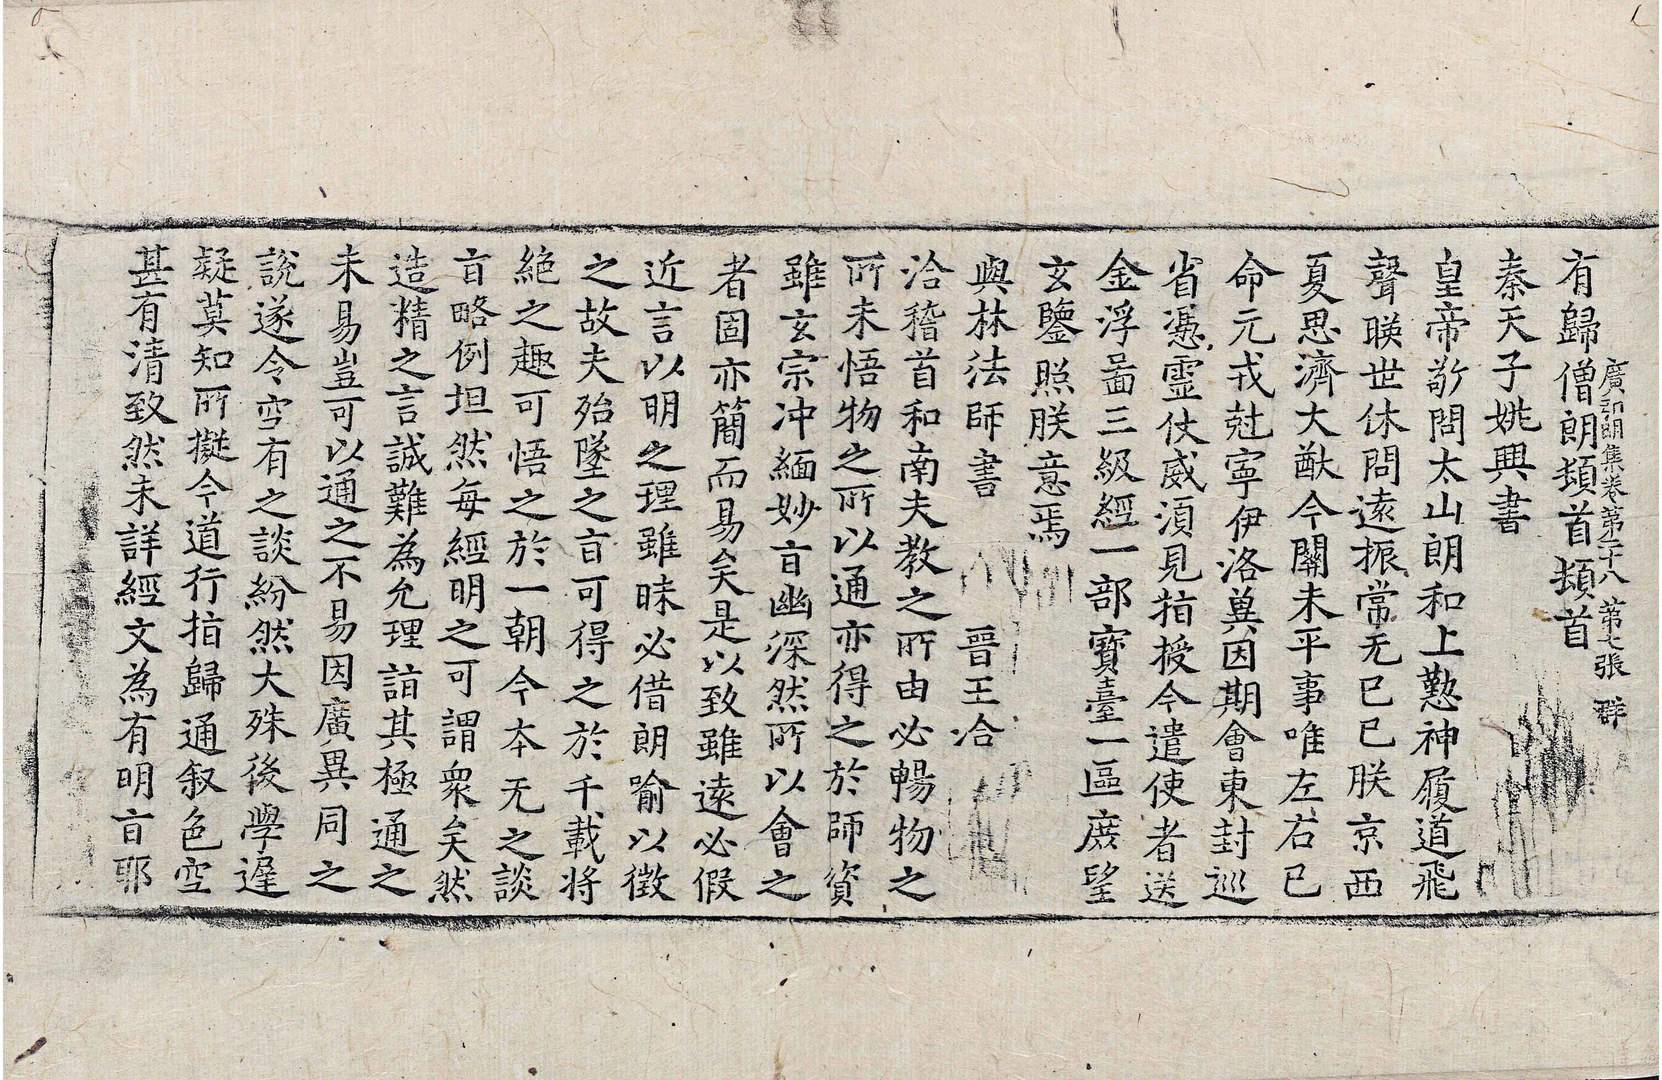 有歸僧朗頓首頓首
廣弘明集卷第二十八 第七張 群
秦天子姚興書
皇帝敬問太山朗和上懃神履道飛
聲暎世休問遠振常无已已朕京西
夏思濟大猷今關未平事唯左右已
命元戎尅寧伊洛冀因期會東封巡
省憑靈仗威須見指授今遣使者送
金浮啚三級經一部寶臺一區庶望
玄鑒照朕意焉
與林法師書 晉王洽
洽稽首和南夫教之所由必暢物之
所未悟物之所以通亦得之於師資
雖玄宗冲緬妙旨幽深然所以會之
者固亦簡而易矣是以致雖遠必假
近言以明之理雖昧必借朗喻以徵
之故夫殆墜之旨可得之於千載將
絕之趣可悟之於一朝今本无之談
旨略例坦然每經明之可謂衆矣然
造精之言誠難為允理詣其極通之
未易豈可以通之不易因廣異同之
說遂令空有之談紛然大殊後學遲
疑莫知所擬今道行指歸通叙色空
甚有清致然未詳經文為有明旨耶